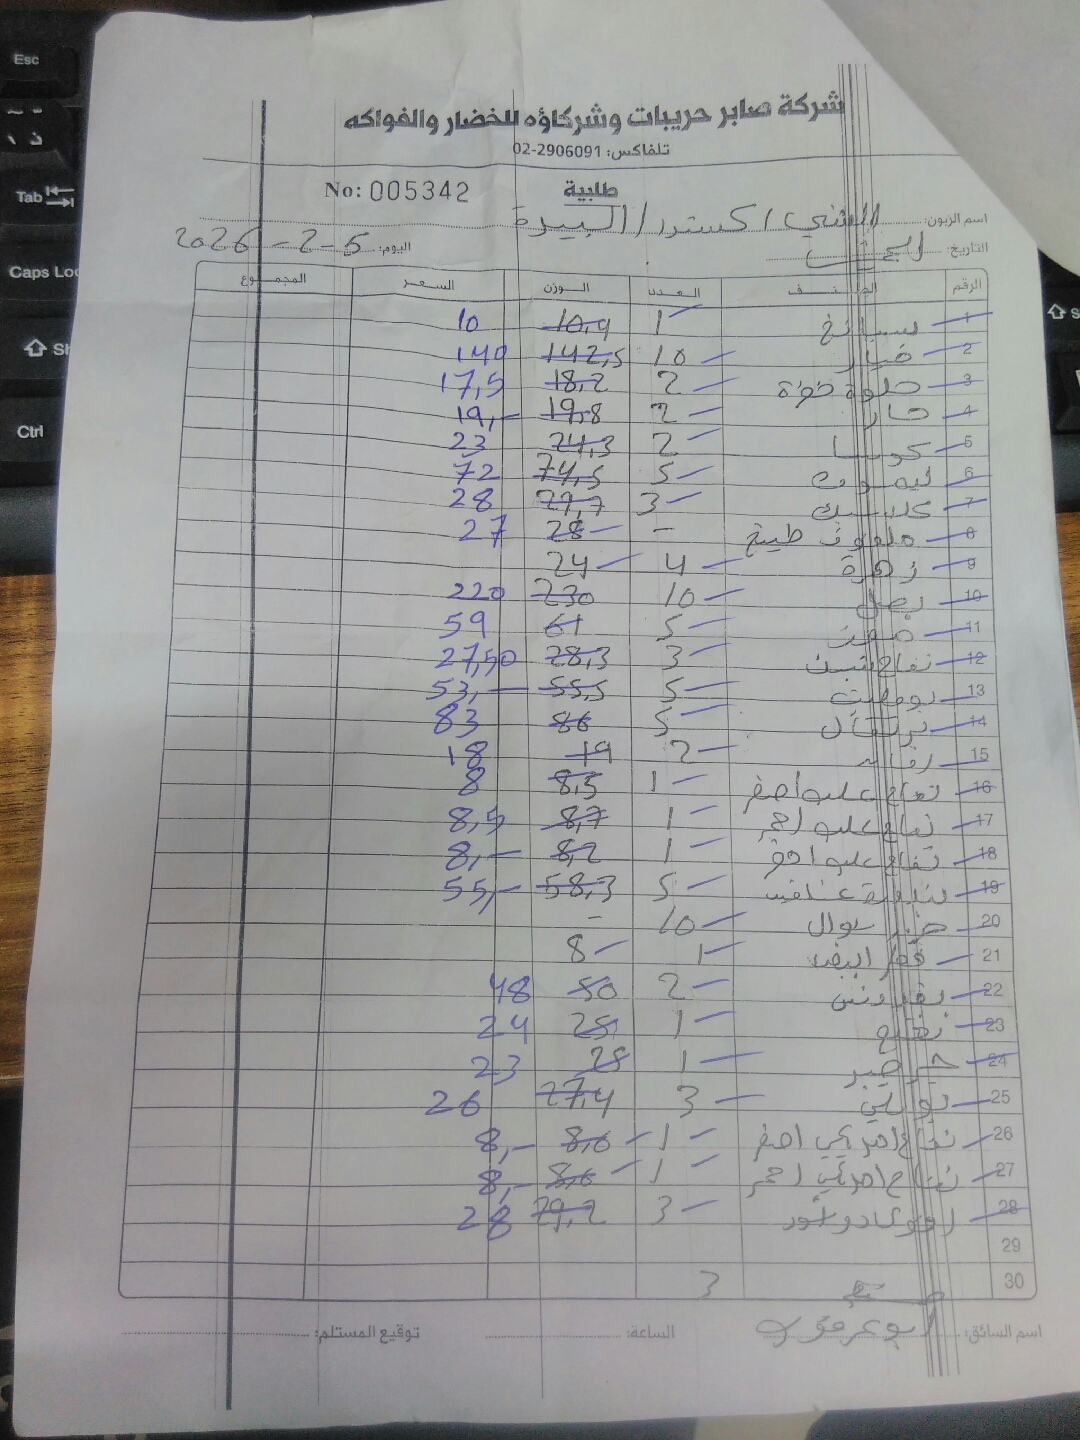 شركة صابر حريبات وشركاؤه للخضار والفواكه
تلفاكس: 02-2906091
No: 005342
طلبية
اسم الزبون: / البيرة
التاريخ: اليوم: 2026-2-5
الرقم الصنف العدد الوزن السعر المجموع
1 سبانخ 1 10,9 10
2 خيار 10 142,5 140
3 حلوة 2 18,2 17,5
4 حار 2 19,8 19,-
5 كوسا 2 24,3 23
6 ليمون 5 74,5 72
7 كلاسيك 3 29,7 28
8 ملفوف طبيخ - 28 27
9 زهرة 4 24
10 بصل 10 230 220
11 موز 5 61 59
12 تفاح 3 28,3 27,50
13 5 55,5 53,-
14 برتقال 5 86 83
15 2 19 18
16 تفاح اصفر 1 8,5 8
17 تفاح احمر 1 8,7 8,5
18 تفاح 1 8,2 8,-
19 بندورة 5 58,3 55,-
20 10 -
21 فطر ابيض 1 8
22 بقدونس 2 50 48
23 1 25 24
24 1 25 23
25 بوملي 3 27,4 26
26 تفاح امريكي اصفر 1 8,6 8,-
27 تفاح امريكي احمر 1 8,6 8,-
28 افوكادو 3 29,2 28
29
30 3
اسم السائق: ابو الساعة: توقيع المستلم:
Esc
Tab
Caps Loc
Ctrl